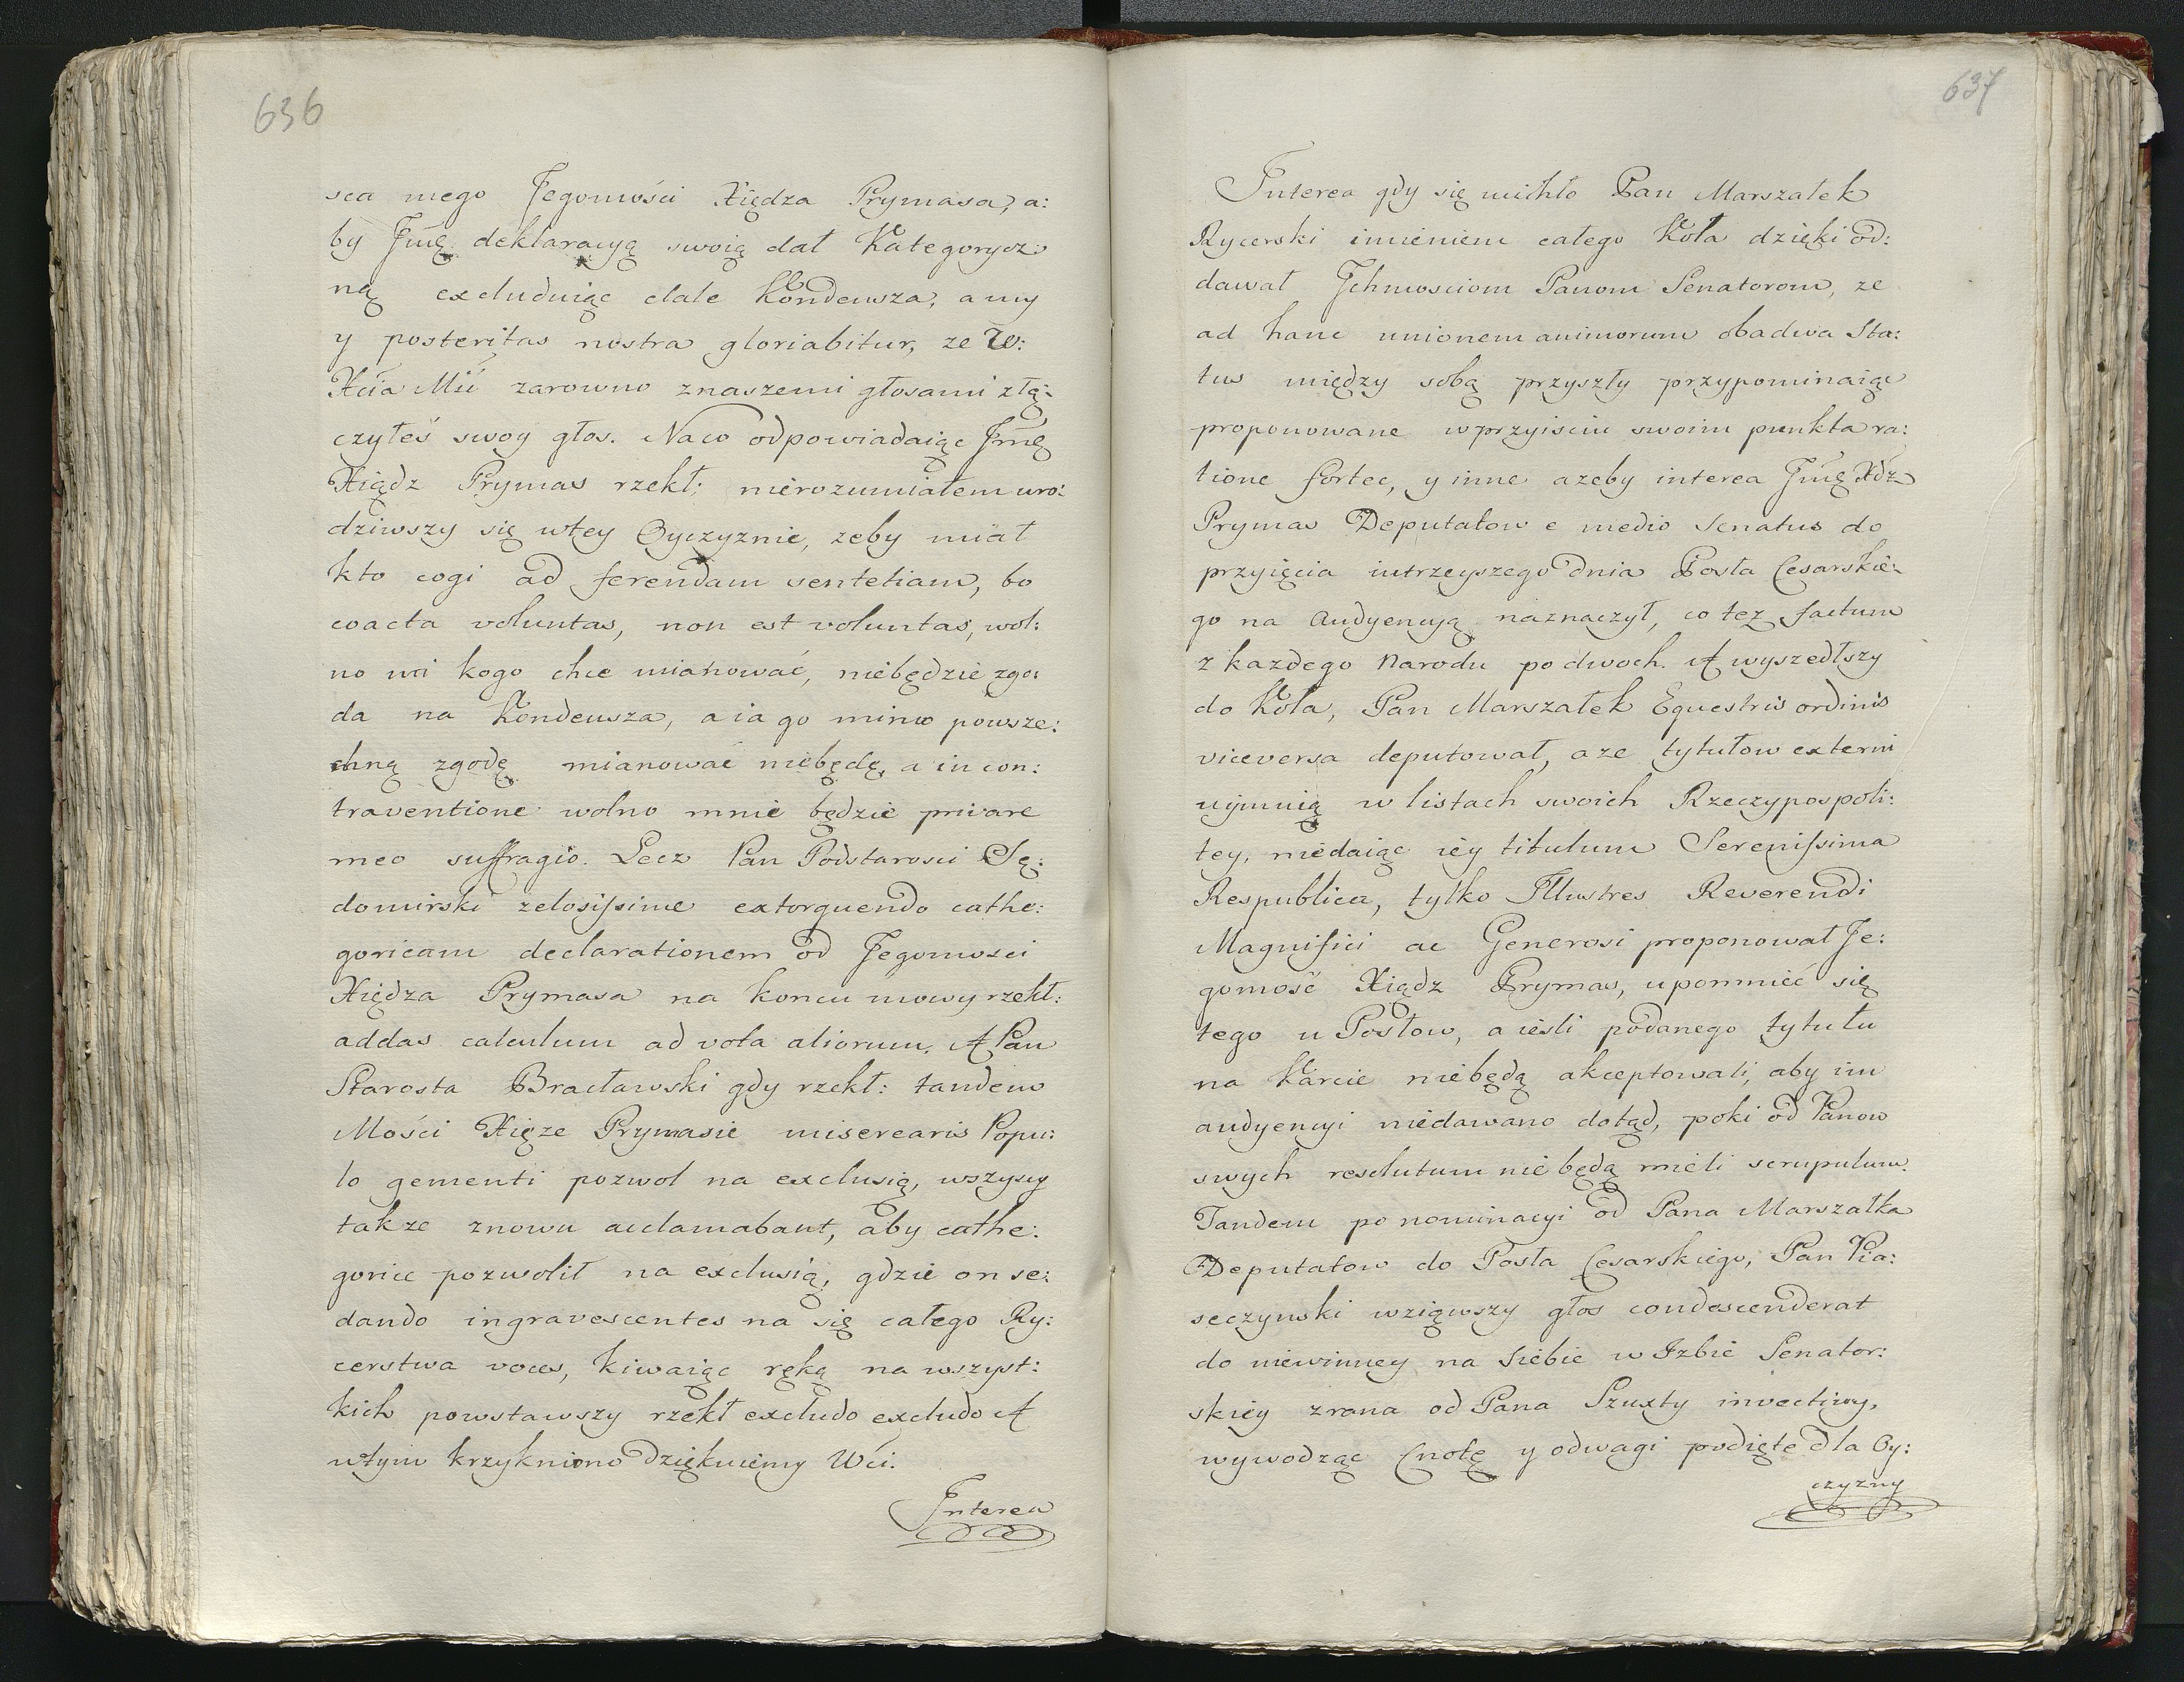 636
sca mego Jegomości Xiędza Prymasa, a:
by Jmę deklaracyą swoią dał Kategorycz:
ną excluduiąc dale Kondeusza, a my
y posteritas nostra gloriabitur, ze W:
Xcia Mći zarowno znaszemi głosami złą:
czyłeś swoy głos. Naco odpowiadaiąc Jmę
Xiądz Prymas rzekł: nierozumiałem uro:
dziwszy się wtey Oyczyznie, zeby miał
kto cogi ad ferendam sentetiam, bo
coacta voluntas, non est voluntas, wol:
no mi kogo chce mianować, niebędzie zgo:
da na Kondeusza, a ia go mimo powsze:
chną zgodę mianować niebędę, a in con:
traventione wolno mnie będzie privare
meo suffragio. Lecz Pan Podstarosci Sę:
domirski zelosissime extorquendo cathe:
goricam declarationem od Jegomosci
Xiędza Prymasa na koncu mowy rzekł:
addas calculum ad vota aliorum. A Pan
Starosta Bracławski gdy rzekł: tandem
Mości Xięze Prymasie miserearis Popu:
lo gementi pozwol na exclusią, wszyscy
takze znowu acclamabant, aby cathe:
gorice pozwolił na exclusią, gdzie on se:
dando ingravescentes na się całego Ry:
cerstwa voces, kiwaiąc ręką na wszyst:
kich powstawszy rzekł excludo excludo A
wtym krzykniono dziękuiemy Wći.
Interea
637
Interea gdy się ucichło Pan Marszałek
Rycerski imieniem całego Koła dzięki od:
dawał Jchmosciom Panom Senatorom, ze
ad hanc unionem animorum obadwa Sta:
tus między sobą przyszły przypominaiąc
proponowane wprzyisciu swoim punkta ra:
tione fortec, y inne azeby interea Jmę Xdz
Prymas Deputatow e medio Senatus do
przyięcia iutrzeyszego dnia Posła Cesarskie:
go na Audyencyą naznaczył, co tez factum
z kazdego Narodu po dwoch. A wyszedłszy
do Koła, Pan Marszałek Equestris ordinis
viceversa deputował, aze tytułow externi
uymuią w listach swoich Rzeczypospoli:
tey, niedaiąc iey titulum Serenissima
Respublica, tylko Illustres Reverendi
Magnifici ac Generosi proponował Je:
gomość Xiądz Prymas, upomnieć się
tego u Posłow, a iesli podanego tytułu
na karcie niebędą akceptowali, aby im
audyencyi niedawano dotąd, poki od Panow
swych resolutum nie będą mieli scrupulum.
Tandem po nominacyi od Pana Marszałka
Deputatow do Posła Cesarskiego, Pan Pia:
seczynski wziąwszy głos condescenderat
do niewinney na siebie w Izbie Senator:
skiey zrana od Pana Szuxty invectivy,
wywodząc Cnotę y odwagi podięte dla Oy:
czyzny